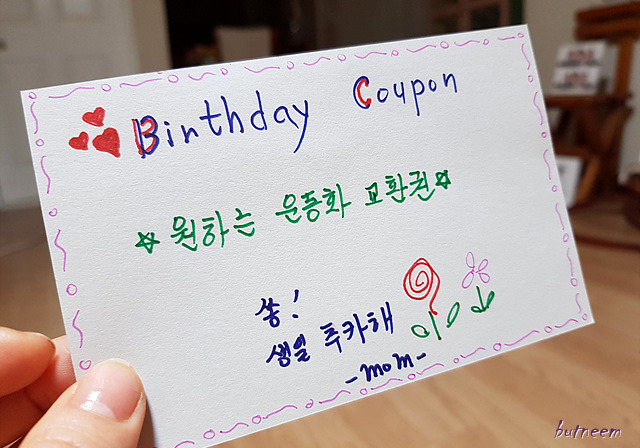 Birthday Coupon
☆ 원하는 운동화 교환권 ☆
쏭!
생일 추카해
-mom-
butneem